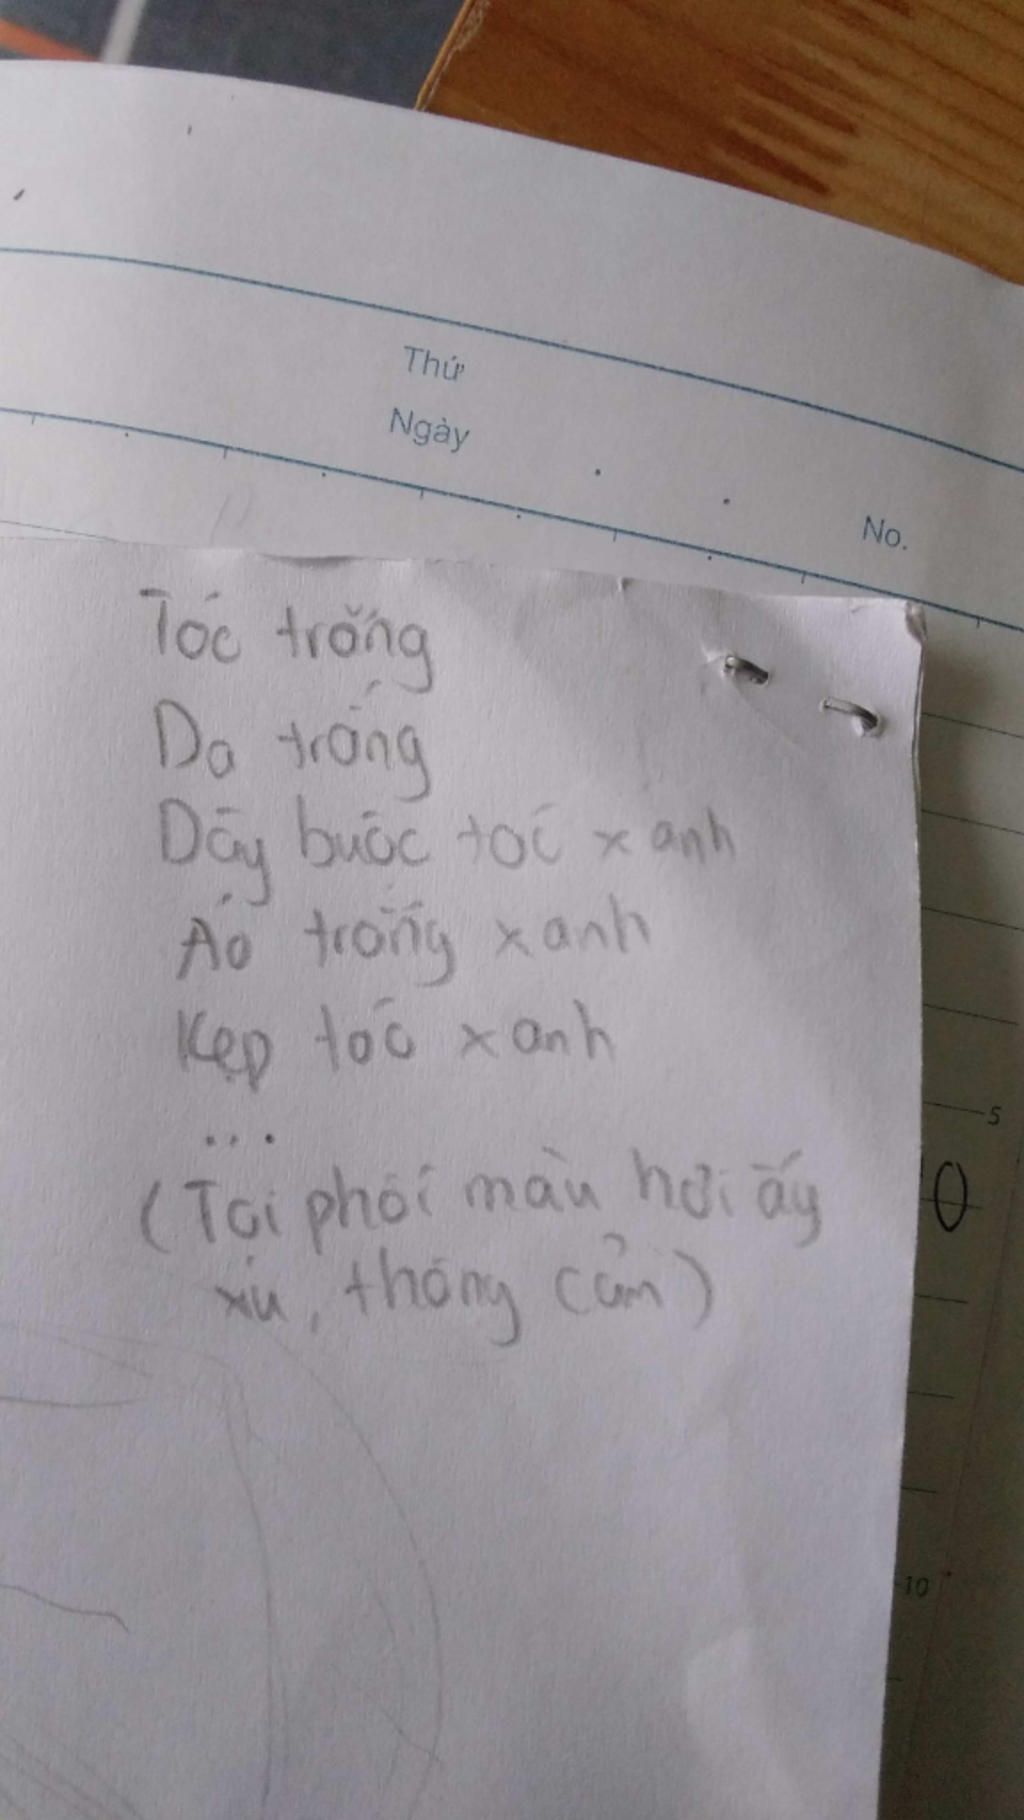 Thứ
Ngày
No.
Tóc trắng
Da trắng
Dây buộc tóc xanh
Áo trắng xanh
Kẹp tóc xanh
...
(Tại phối màu hơi ấy
xíu, thông cảm)
5
0
10